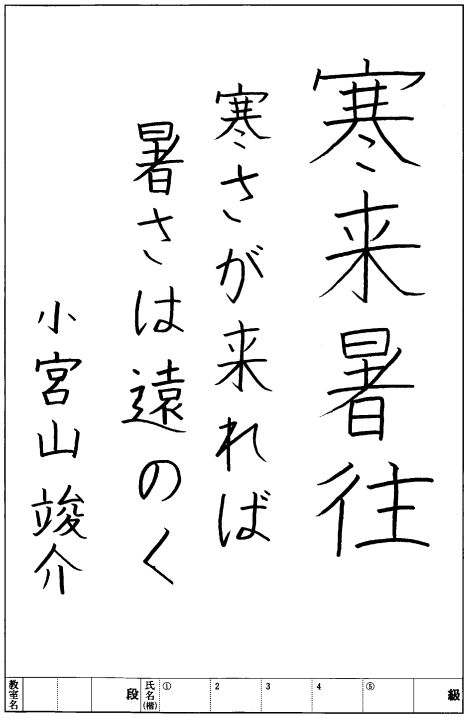 寒来暑往
寒さが来れば
暑さは遠のく
小宮山 竣介
教室名
段
氏名(楷)
①
2
3
4
⑤
級